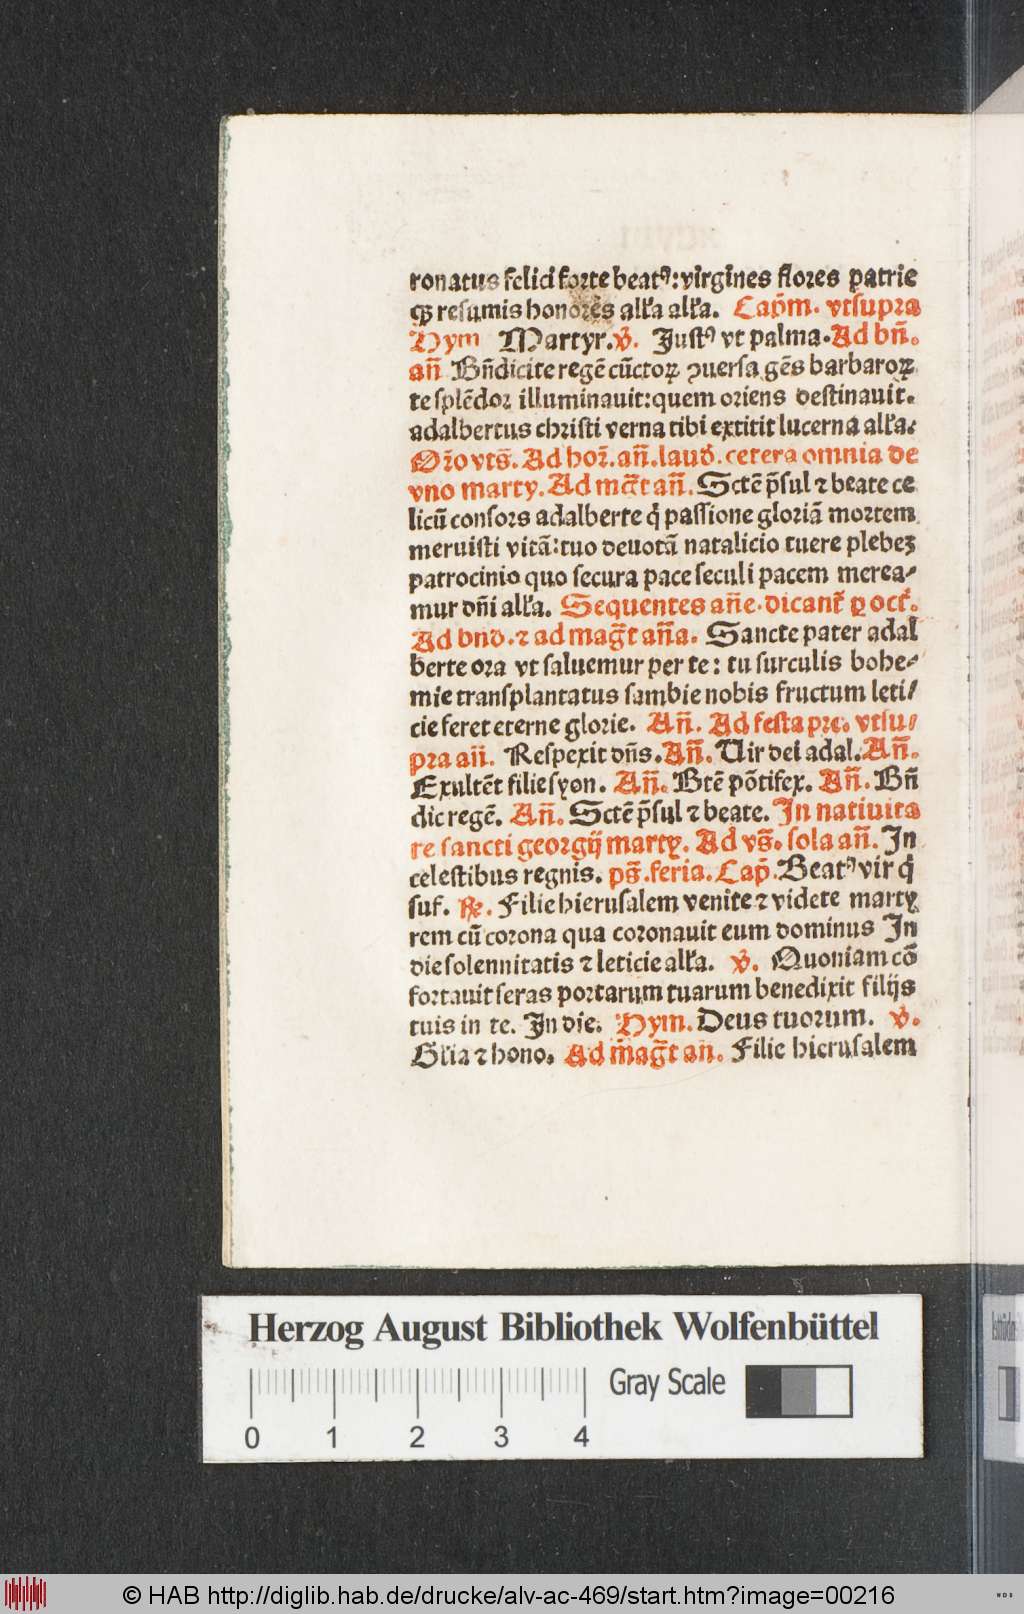 ronatus felici sorte beatꝰ: virgines flores patrie
ꝙ resumis honores all'a all'a. Cap̄m. vtsupra
Hym Martyr. v̓. Justꝰ vt palma. Ad bn̄.
an̄ Bn̄dicite regē cūctoꝝ ꝯuersa gēs barbaroꝝ
te splēdor illuminauit: quem oriens destinauit.
adalbertus christi verna tibi extitit lucerna all'a.
Or̄o vts̄. Ad hor̄. an̄. laud̓. cetera omnia de
vno marty. Ad mc̄t an̄. Sctē p̄sul ⁊ beate ce
licū consors adalberte q̓ passione gloriā mortem
meruisti vitā: tuo deuotā natalicio tuere plebeꝫ
patrocinio quo secura pace seculi pacem merea⸗
mur dn̄i all'a. Sequentes an̄e. dicant̄ ꝑ oct̄.
Ad bnd. ⁊ ad mag̅t an̄a. Sancte pater adal
berte ora vt saluemur per te: tu surculis bohe⸗
mie transplantatus sambie nobis fructum leti⸗
cie feret eterne glorie. An̄. Ad festa pre. vtsu⸗
pra an̄. Respexit dn̄s. An̄. Uir dei adal. An̄.
Exultēt filie syon. An̄. Btē pōtifex. An̄. Bn̄
dic regē. An̄. Sctē p̄sul ⁊ beate. In natiuita
te sancti georgij martyꝝ. Ad vs̄. sola an̄. In
celestibus regnis. ps̄. feria. Cap̄. Beatꝰ vir q̓
suf. ꝶ. Filie hierusalem venite ⁊ videte marty
rem cū corona qua coronauit eum dominus In
die solennitatis ⁊ leticie all'a. v̓. Quoniam cō
fortauit seras portarum tuarum benedixit filijs
tuis in te. In die. Hym. Deus tuorum. v̓.
Gl'ia ⁊ hono. Ad m̄ag̅t an. Filie hierusalem
Herzog August Bibliothek Wolfenbüttel
Gray Scale
0 1 2 3 4
© HAB http://diglib.hab.de/drucke/alv-ac-469/start.htm?image=00216